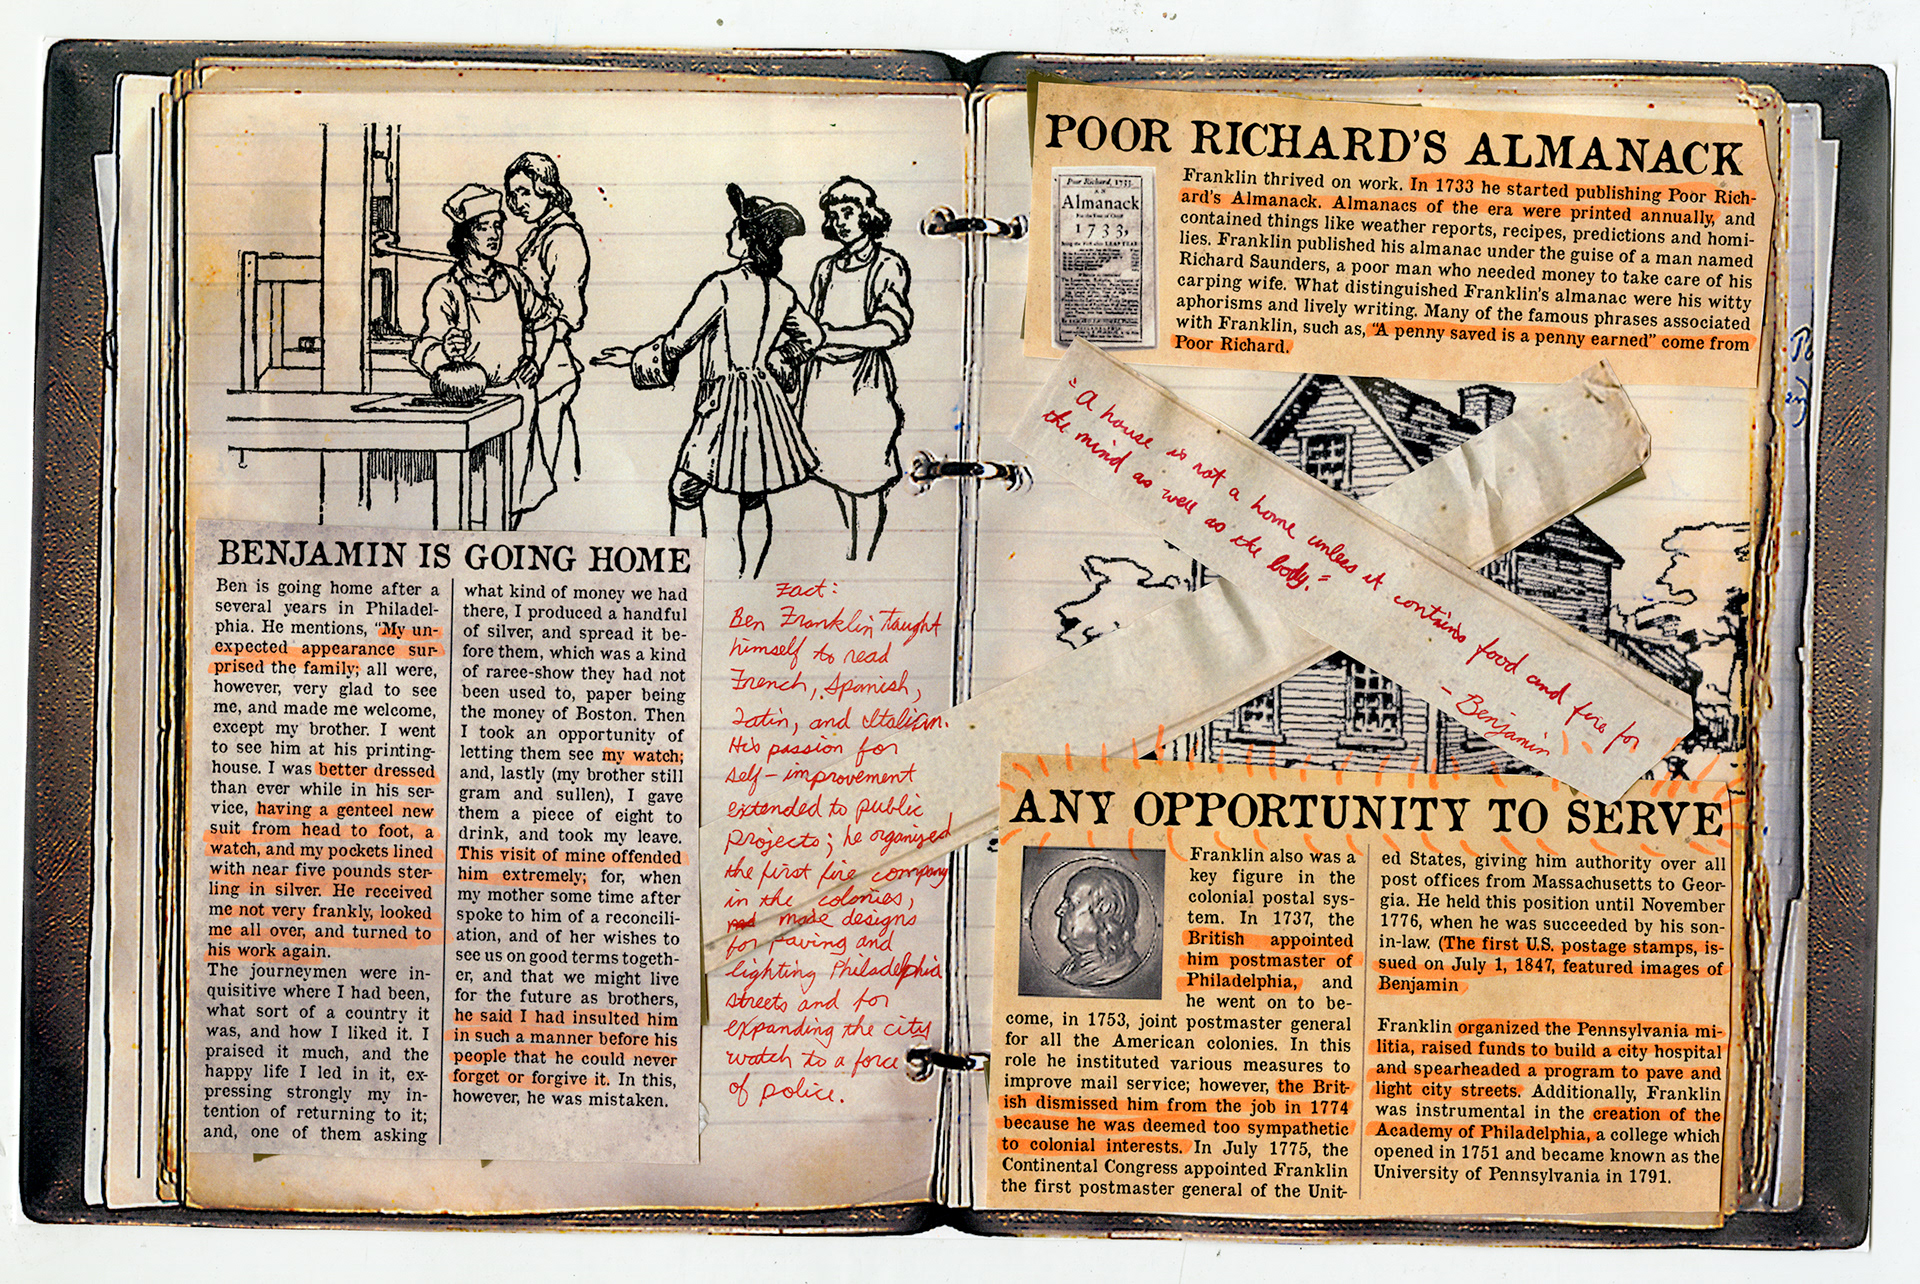 BENJAMIN IS GOING HOME
Ben is going home after a
several years in Philadel-
phia. He mentions, "My un-
expected appearance sur-
prised the family; all were,
however, very glad to see
me, and made me welcome,
except my brother. I went
to see him at his printing-
house. I was better dressed
than ever while in his ser-
vice, having a genteel new
suit from head to foot, a
watch, and my pockets lined
with near five pounds ster-
ling in silver. He received
me not very frankly, looked
me all over, and turned to
his work again.
The journeymen were in-
quisitive where I had been,
what sort of a country it
was, and how I liked it. I
praised it much, and the
happy life I led in it, ex-
pressing strongly my in-
tention of returning to it;
and, one of them asking
what kind of money we had
there, I produced a handful
of silver, and spread it be-
fore them, which was a kind
of raree-show they had not
been used to, paper being
the money of Boston. Then
I took an opportunity of
letting them see my watch;
and, lastly (my brother still
gram and sullen), I gave
them a piece of eight to
drink, and took my leave.
This visit of mine offended
him extremely; for, when
my mother some time after
spoke to him of a reconcili-
ation, and of her wishes to
see us on good terms togeth-
er, and that we might live
for the future as brothers,
he said I had insulted him
in such a manner before his
people that he could never
forget or forgive it. In this,
however, he was mistaken.
Fact:
Ben Franklin taught
himself to read
French, Spanish,
Latin, and Italian.
His passion for
self-improvement
extended to public
projects; he organized
the first fire company
in the colonies,
made designs
for paving and
lighting Philadelphia
streets and for
expanding the city
watch to a force
of police.
POOR RICHARD'S ALMANACK
Poor Richard, 1733.
AN
Almanack
For the Year of Christ
1733,
Franklin thrived on work. In 1733 he started publishing Poor Rich-
ard's Almanack. Almanacs of the era were printed annually, and
contained things like weather reports, recipes, predictions and homi-
lies. Franklin published his almanac under the guise of a man named
Richard Saunders, a poor man who needed money to take care of his
carping wife. What distinguished Franklin's almanac were his witty
aphorisms and lively writing. Many of the famous phrases associated
with Franklin, such as, "A penny saved is a penny earned" come from
Poor Richard.
"A house is not a home unless it contains food and fire for
the mind as well as the body."
- Benjamin
ANY OPPORTUNITY TO SERVE
Franklin also was a
key figure in the
colonial postal sys-
tem. In 1737, the
British appointed
him postmaster of
Philadelphia, and
he went on to be-
come, in 1753, joint postmaster general
for all the American colonies. In this
role he instituted various measures to
improve mail service; however, the Brit-
ish dismissed him from the job in 1774
because he was deemed too sympathetic
to colonial interests. In July 1775, the
Continental Congress appointed Franklin
the first postmaster general of the Unit-
ed States, giving him authority over all
post offices from Massachusetts to Geor-
gia. He held this position until November
1776, when he was succeeded by his son-
in-law. (The first U.S. postage stamps, is-
sued on July 1, 1847, featured images of
Benjamin
Franklin organized the Pennsylvania mi-
litia, raised funds to build a city hospital
and spearheaded a program to pave and
light city streets. Additionally, Franklin
was instrumental in the creation of the
Academy of Philadelphia, a college which
opened in 1751 and became known as the
University of Pennsylvania in 1791.